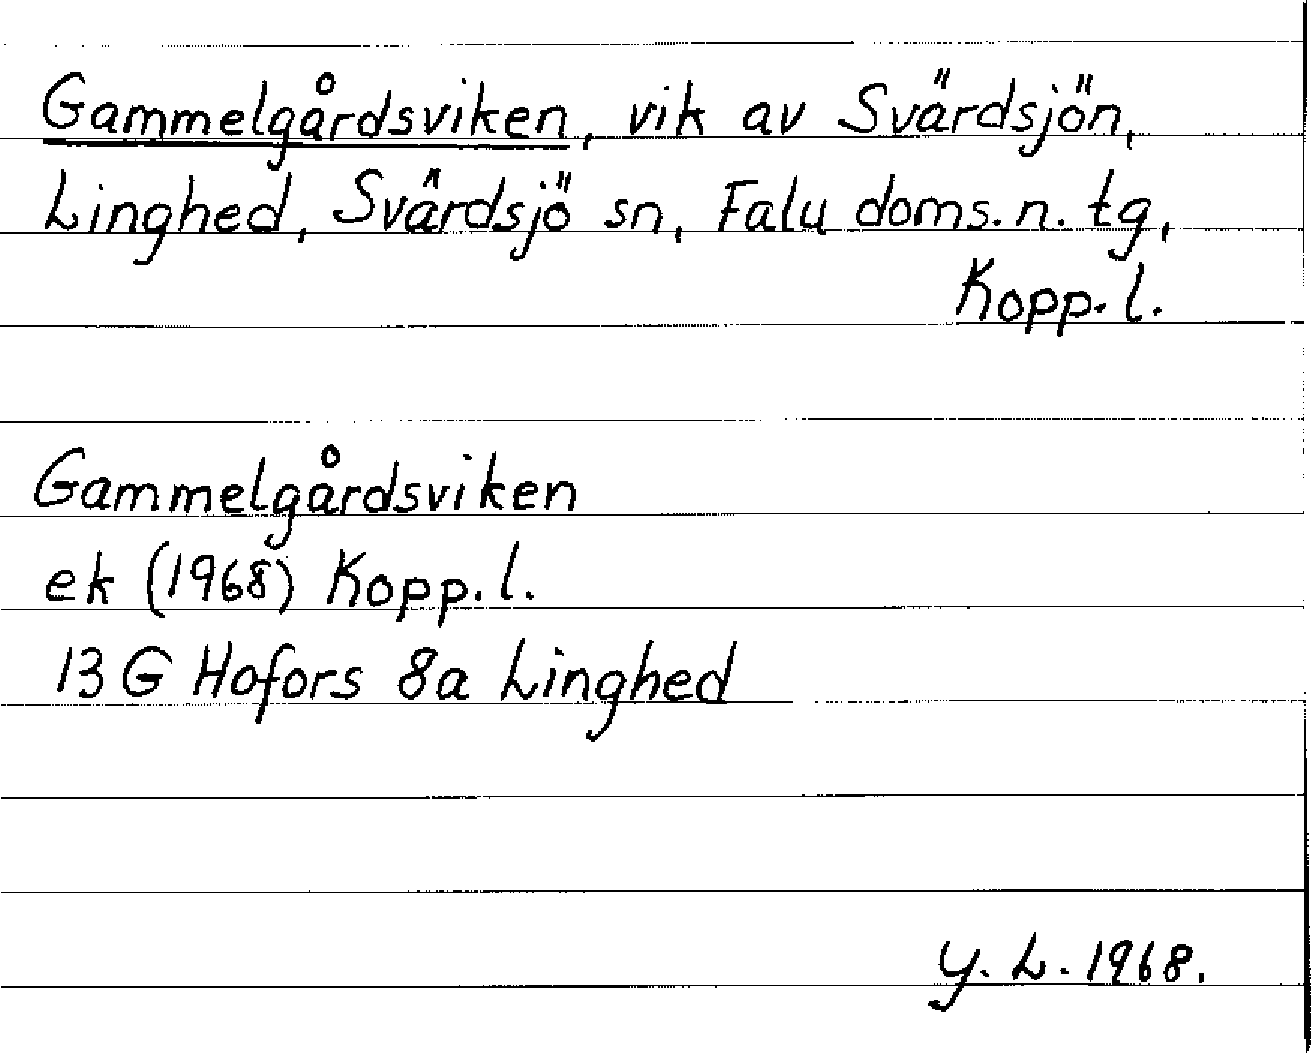 Gammelgårdsviken, vik av Svärdsjön,
Linghed, Svärdsjö sn, Falu doms. n. tg,
Kopp. l.
Gammelgårdsviken
ek (1968) Kopp. l.
13 G Hofors 8a Linghed
Y. L. 1968.